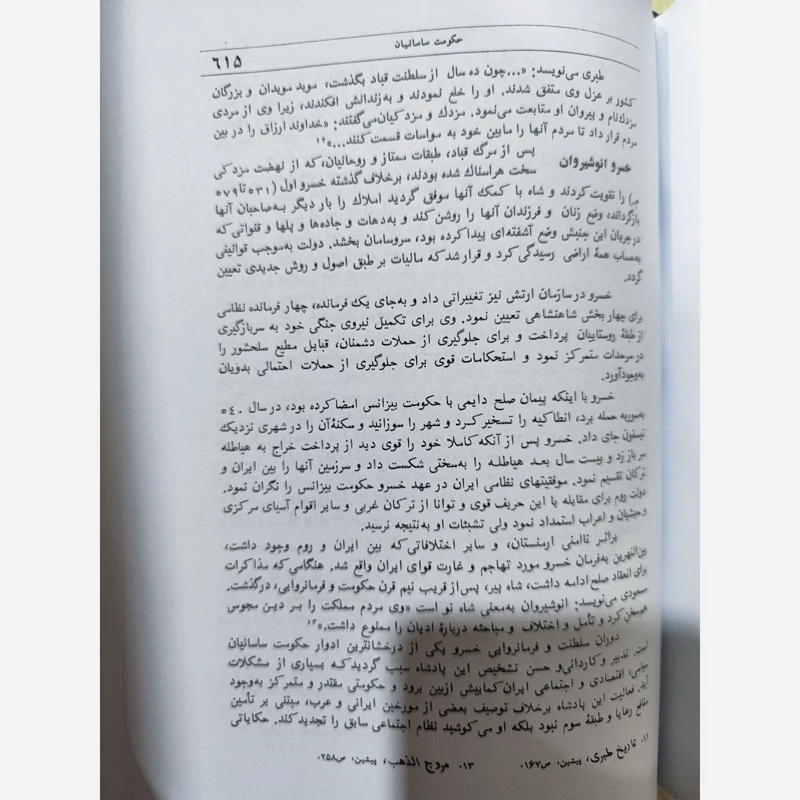 حکومت ساسانیان
٦١٥
طبری می‌نویسد: «...چون ده سال از سلطنت قباد بگذشت، موبد موبدان و بزرگان
کشور بر عزل وی متفق شدند. او را خلع نمودند و به‌زندانش افکندند، زیرا وی از مردی
مزدك‌نام و پیروان او متابعت می‌نمود. مزدك و مزدکیان می‌گفتند: «خداوند ارزاق را در بین
مردم قرار داد تا مردم آنها را مابین خود به مواسات قسمت کنند...»
خسرو انوشیروان
پس از مرگ قباد، طبقات ممتاز و روحانیان، که از نهضت مزدکی
سخت هراسناك شده بودند، برخلاف گذشته خسرو اول (٥٣١ تا ٥٧٩
م.) را تقویت کردند و شاه با کمك آنها موفق گردید املاك را بار دیگر به‌صاحبان آنها
بازگرداند، وضع زنان و فرزندان آنها را روشن کند و به‌دهات و جاده‌ها و پلها و قنواتی که
در جریان این جنبش وضع آشفته‌ای پیدا کرده بود، سروسامان بخشد. دولت به‌موجب قوانینی
به‌حساب همهٔ اراضی رسیدگی کرد و قرار شد که مالیات بر طبق اصول و روش جدیدی تعیین
گردد.
خسرو در سازمان ارتش نیز تغییراتی داد و به‌جای یك فرمانده، چهار فرمانده نظامی
برای چهار بخش شاهنشاهی تعیین نمود. وی برای تکمیل نیروی جنگی خود به سربازگیری
از طبقهٔ روستاییان پرداخت و برای جلوگیری از حملات دشمنان، قبایل مطیع سلحشور را
در سرحدات متمرکز نمود و استحکامات قوی برای جلوگیری از حملات احتمالی بدویان
به‌وجود آورد.
خسرو با اینکه پیمان صلح دایمی با حکومت بیزانس امضا کرده بود، در سال ٥٤٠
به‌سوریه حمله برد، انطاکیه را تسخیر کرد و شهر را سوزانید و سکنهٔ آن را در شهری نزدیك
تیسفون جای داد. خسرو پس از آنکه کاملا خود را قوی دید از پرداخت خراج به هیاطله
سر باز زد و بیست سال بعد هیاطله را به‌سختی شکست داد و سرزمین آنها را بین ایران و
ترکان تقسیم نمود. موفقیتهای نظامی ایران در عهد خسرو حکومت بیزانس را نگران نمود.
دولت روم برای مقابله با این حریف قوی و توانا از ترکان غربی و سایر اقوام آسیای مرکزی
و حبشیان و اعراب استمداد نمود ولی تشبثات او به‌نتیجه نرسید.
براثر ناامنی ارمنستان، و سایر اختلافاتی که بین ایران و روم وجود داشت،
بین‌النهرین به‌فرمان خسرو مورد تهاجم و غارت قوای ایران واقع شد. هنگامی که مذاکرات
برای انعقاد صلح ادامه داشت، شاه پیر، پس از قریب نیم قرن حکومت و فرمانروایی، درگذشت.
مسعودی می‌نویسد: انوشیروان به‌معنی شاه نو است «وی مردم مملکت را بر دین مجوس
هم‌سخن کرد و تأمل و اختلاف و مباحثه دربارهٔ ادیان را ممنوع داشت.»١٣
دوران سلطنت و فرمانروایی خسرو یکی از درخشانترین ادوار حکومت ساسانیان
است. تدبیر و کاردانی و حسن تشخیص این پادشاه سبب گردید که بسیاری از مشکلات
سیاسی، اقتصادی و اجتماعی ایران کمابیش ازبین برود و حکومتی مقتدر و متمرکز به‌وجود
آید. فعالیت این پادشاه برخلاف توصیف بعضی از مورخین ایرانی و عرب، مبتنی بر تأمین
منافع رعایا و طبقهٔ سوم نبود بلکه او می‌کوشید نظام اجتماعی سابق را تجدید کند. حکایاتی
تاریخ طبری، پیشین، ص١٦٧. ١٣. مروج الذهب، پیشین، ص٢٥٨.